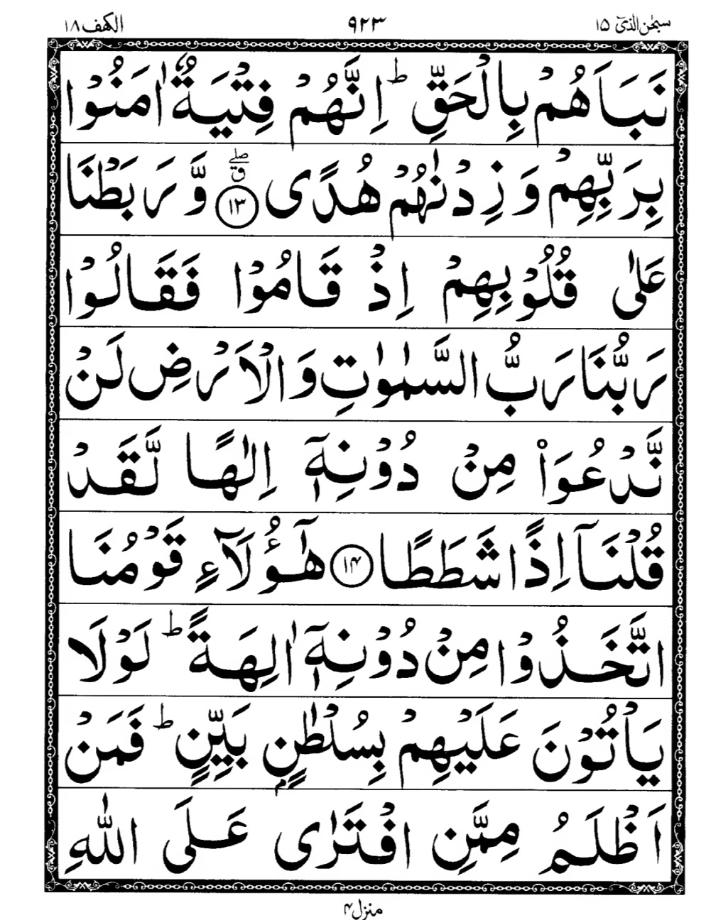 سبحٰن الذیٓ ۱۵ ۹۲۳ الکہف ۱۸
نَبَاَهُمْ بِالْحَقِّ ؕ اِنَّهُمْ فِتْيَةٌ اٰمَنُوْا
بِرَبِّهِمْ وَزِدْنٰهُمْ هُدًى ۖۗ ﴿۱۳﴾ وَّرَبَطْنَا
عَلٰى قُلُوْبِهِمْ اِذْ قَامُوْا فَقَالُوْا
رَبُّنَا رَبُّ السَّمٰوٰتِ وَالْاَرْضِ لَنْ
نَّدْعُوَا۟ مِنْ دُوْنِهٖۤ اِلٰهًا لَّقَدْ
قُلْنَاۤ اِذًا شَطَطًا ﴿۱۴﴾ هٰۤؤُلَآءِ قَوْمُنَا
اتَّخَذُوْا مِنْ دُوْنِهٖۤ اٰلِهَةً ؕ لَوْلَا
يَاْتُوْنَ عَلَيْهِمْ بِسُلْطٰنٍۭ بَيِّنٍ ؕ فَمَنْ
اَظْلَمُ مِمَّنِ افْتَرٰى عَلَى اللّٰهِ
منزل۴